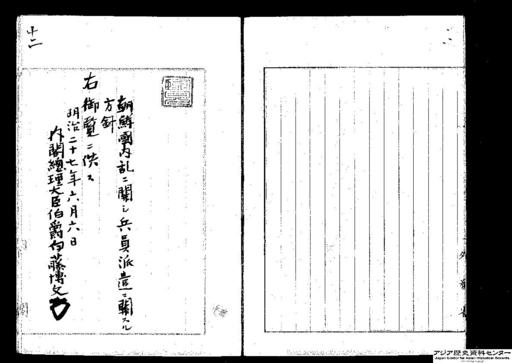 朝鮮國内乱ニ關シ兵員派遣ニ關スル
方針
右御覧ニ供ス
明治二十七年六月六日
内閣總理大臣伯爵伊藤博文
十二
アジア歴史資料センター
Japan Center for Asian Historical Records